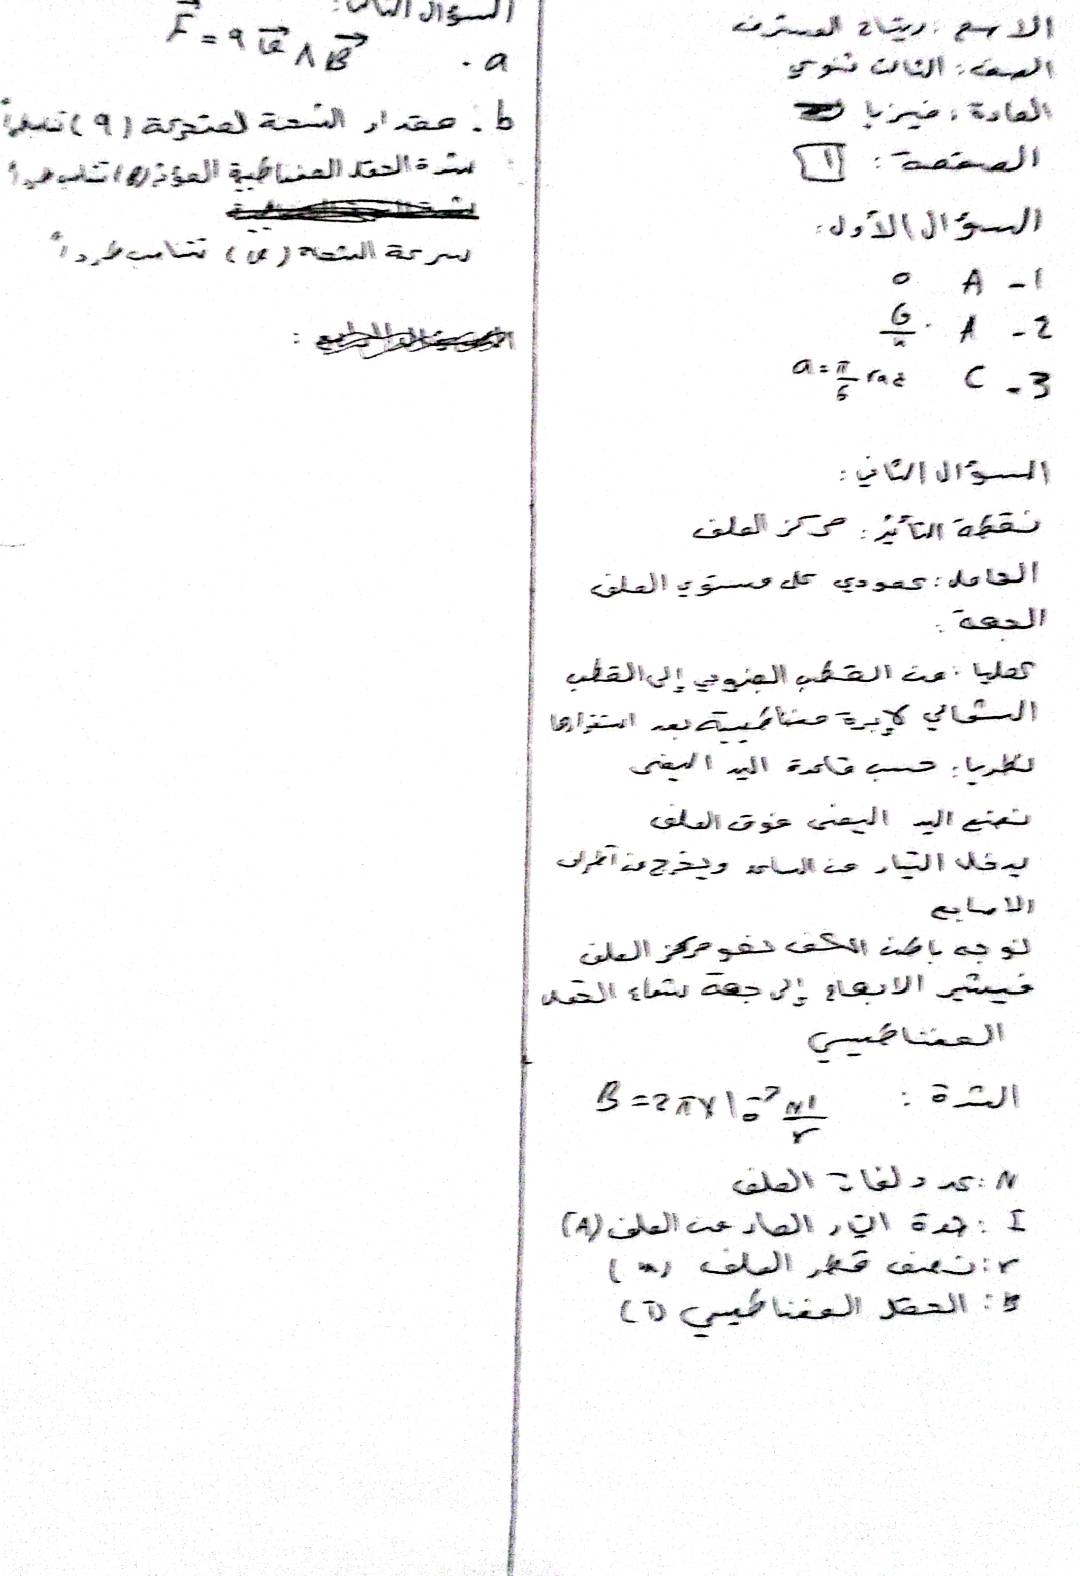 الاسم : ريتاج المسترف
الصف : الثالث ثنوي
المادة : فيزيا
الصفحة : 1
السؤال الأول :
1 - A 0
2 - A . G/n
3 - C a = π/6 rad
السؤال الثاني :
نقطة التأثير : مركز الملف
الحامل : عمودي على مستوي الملف
الجهة :
عمليا : من القطب الجنوبي إلى القطب
الشمالي لإبرة مغناطيسية بعد استقرارها
نظريا : حسب قاعدة اليد اليمنى
نضع اليد اليمنى فوق الملف
يدخل التيار من الساعد ويخرج من أطراف
الاصابع
نوجه باطن الكف نحو مركز الملف
فيشير الابهام إلى جهة شعاع الحقل
المغناطيسي
الشدة : B = 2π×10⁻⁷ NI/r
N : عدد لفات الملف
I : شدة التيار المار من الملف (A)
r : نصف قطر الملف (m)
B : الحقل المغناطيسي (T)
السؤال الثالث :
a . F⃗ = q v⃗ ∧ B⃗
b . مقدار الشحنة المتحركة (q) تناسب طرداً
شدة الحقل المغناطيسية المؤثر (B) تناسب طرداً
سرعة الشحنة (v) تتناسب طرداً